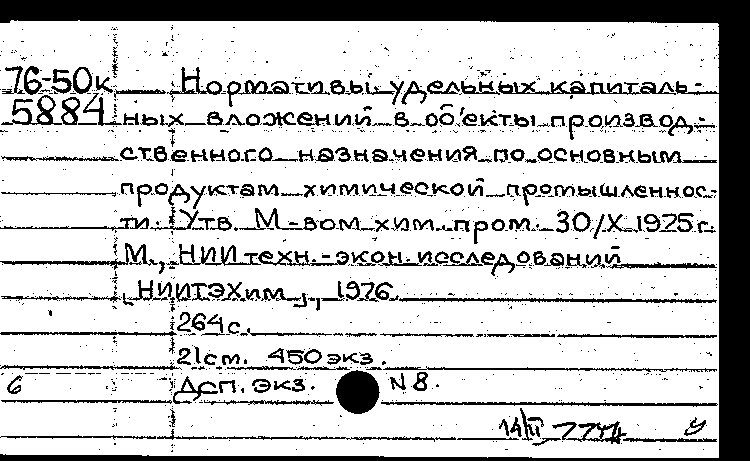 76-50к Нормативы удельных капиталь-
5884 ных вложений в объекты производ-
ственного назначения по основным
продуктам химической промышленнос-
ти. Утв. М-вом хим. пром. 30/X 1975г.
М., НИИ техн.-экон. исследований
"НИИТЭХим", 1976.
264с.
21см. 450экз.
6 Дсп. экз. N 8.
14/VI